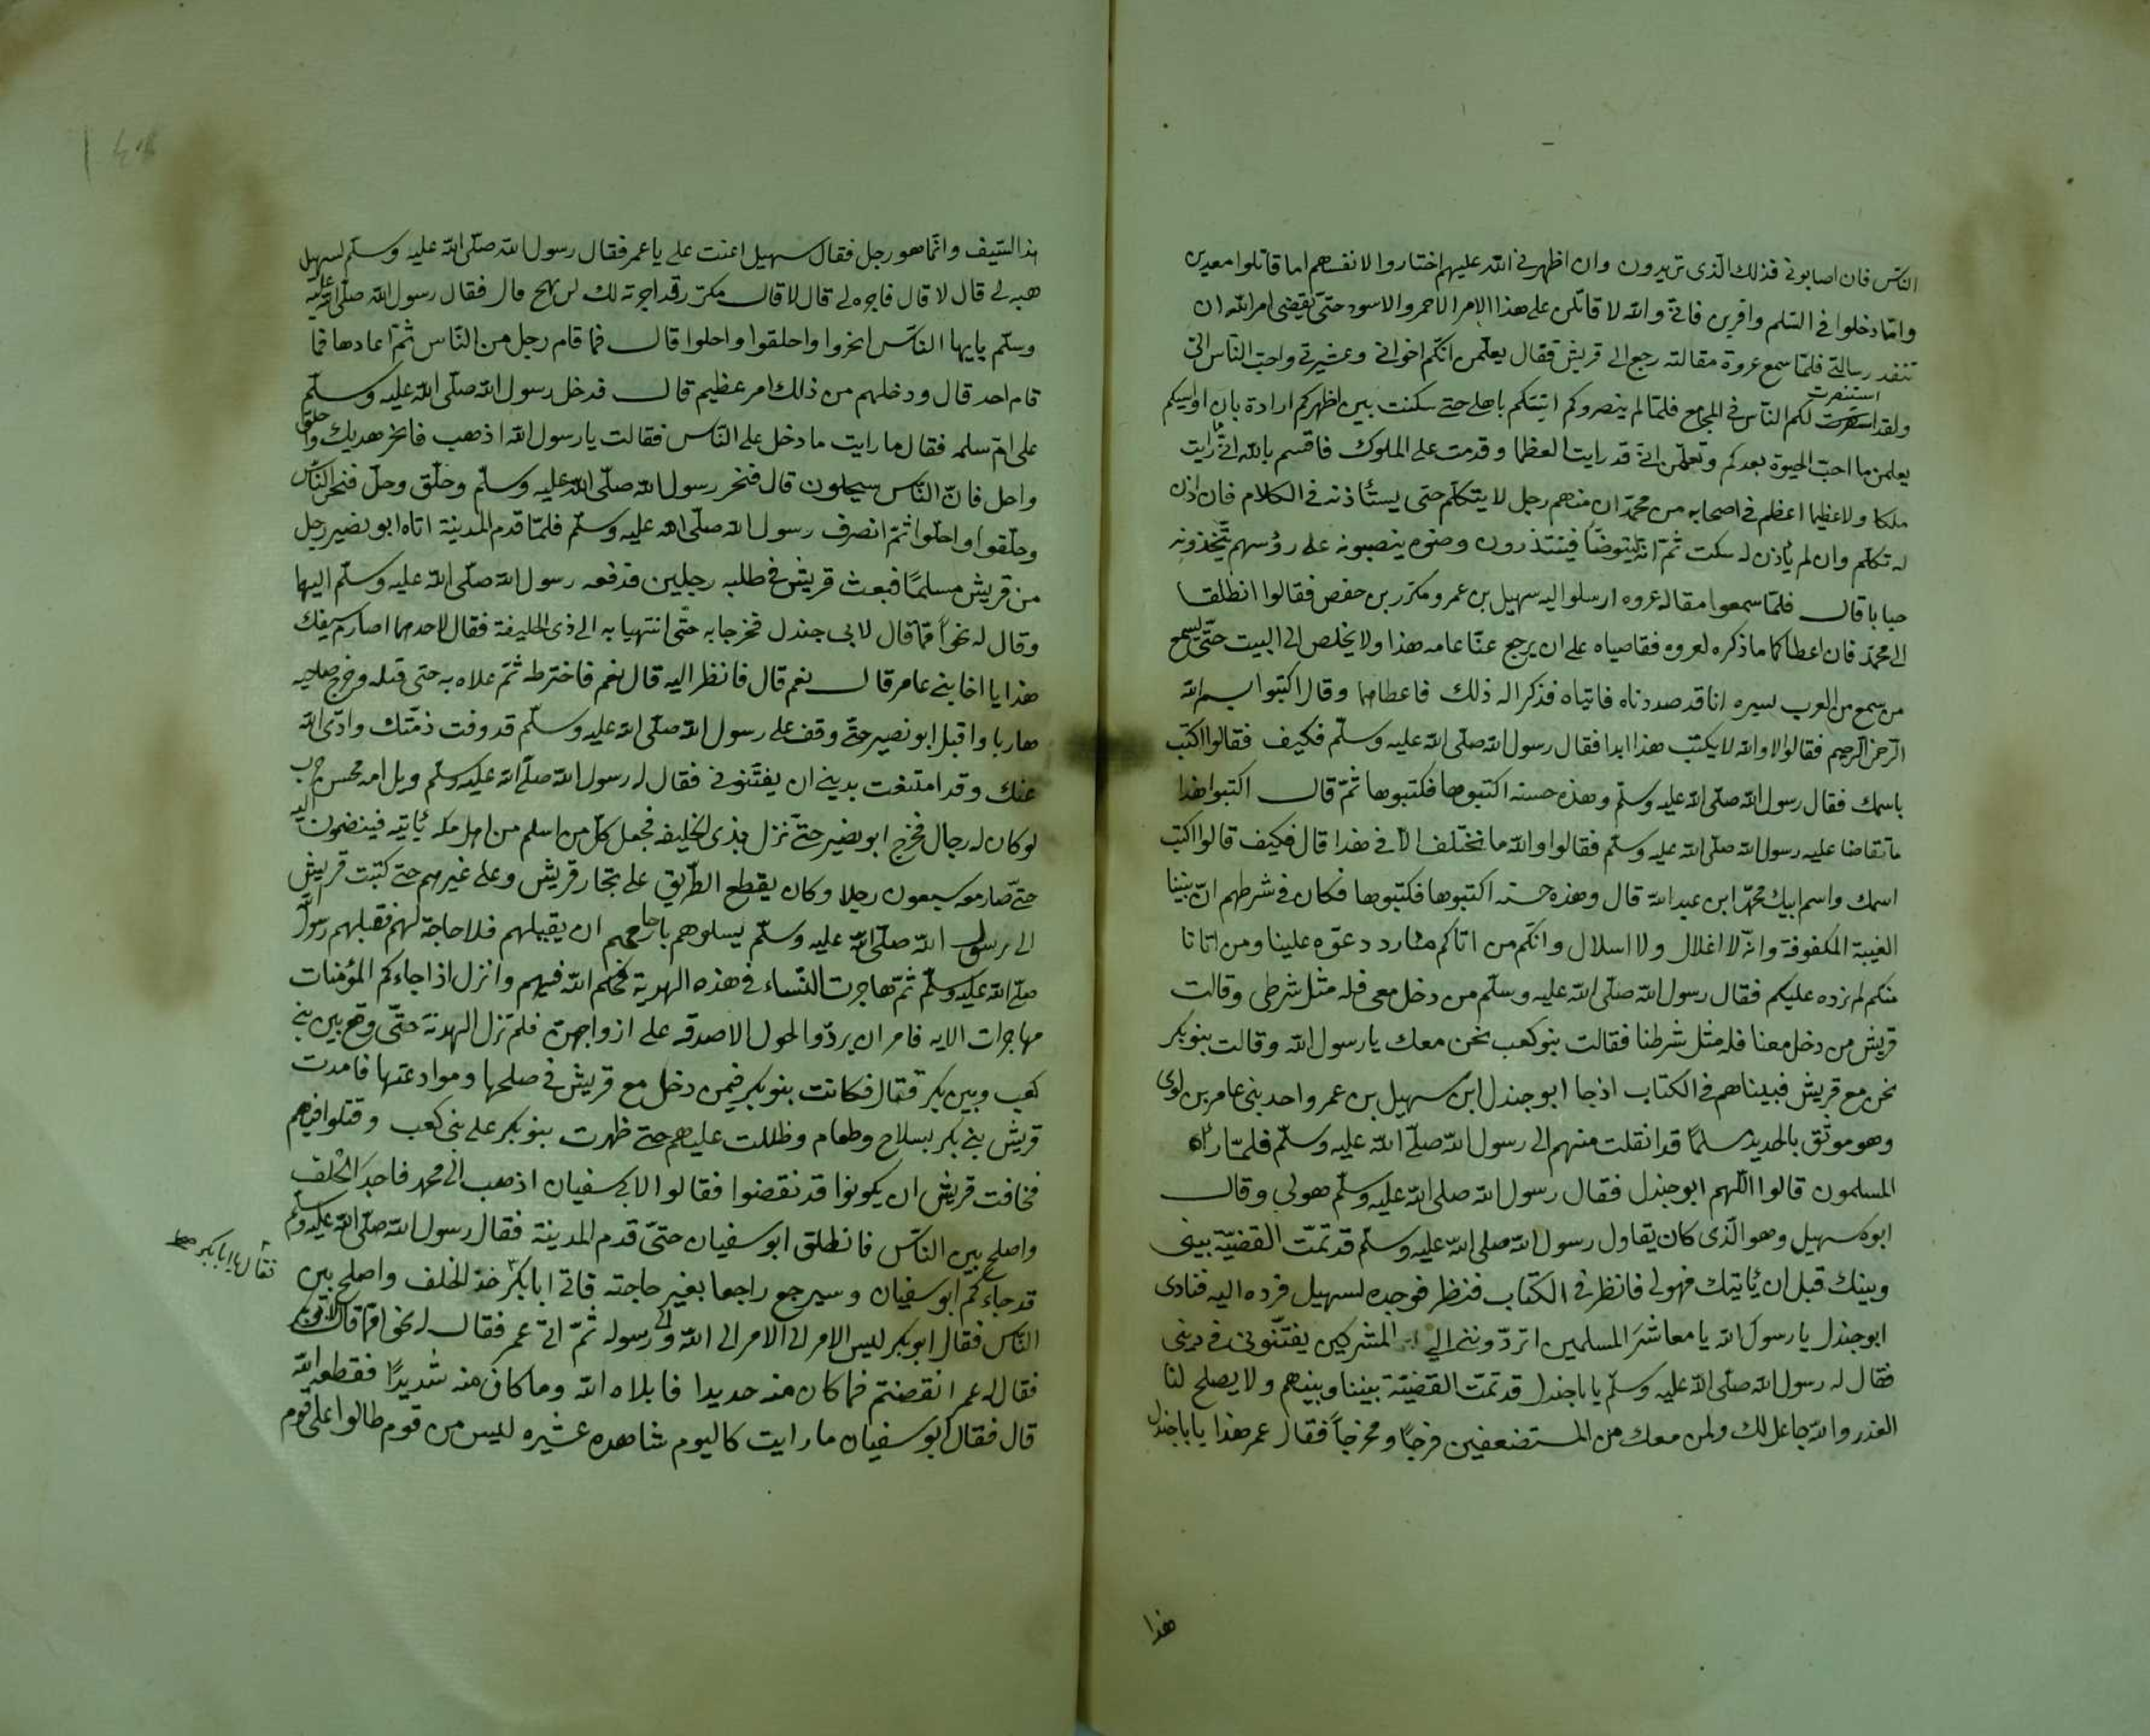 الناس فان اصابوني فذلك الذى تريدون وان اظهرني الله عليهم اختاروا لانفسهم اما قاتلوا معدين
واما دخلوا في السلم وافرين فاني والله لا قاتلن على هذا الامر الاحمر والاسود حتى يقضى امر الله ان
تنفد رسالتى فلما سمع عروة مقالته رجع الى قريش فقال يعلمن انكم اخوانى وعشيرتى واحب الناس الى
استنصرت
ولقد استنصرت لكم الناس في المجامع فلما لم ينصروكم اتيتكم باهلى حتى سكنت بين اظهركم ارادة بان اواسيكم
يعلمن ما احب الحيوة بعدكم وتعلمن انى قد رايت العظما وقدمت على الملوك فاقسم بالله انى ما رايت
ملكا ولا عظيما اعظم في اصحابه من محمد ان منهم رجل لا يتكلم حتى يستأذنه في الكلام فان اذن
له تكلم وان لم ياذن له سكت ثم انه ليتوضأ فيبتدرون وضوه ينصبونه على رؤسهم يتخذونه
حبابا قال فلما سمعوا مقاله عروه ارسلوا اليه سهيل بن عمرو ومكرز بن حفص فقالوا انطلقا
الى محمد فان اعطاكما ما ذكره لعروه فقاضياه على ان يرجع عنا عامه هذا ولا يخلص الى البيت حتى يسمع
من سمع من العرب بسيره انا قد صددناه فاتياه فذكرا له ذلك فاعطاهما وقال اكتبوا بسم الله
الرحمن الرحيم فقالوا لا والله لا يكتب هذا ابدا فقال رسول الله صلى الله عليه وسلم فكيف فقالوا اكتب
باسمك فقال رسول الله صلى الله عليه وسلم وهذه حسنه اكتبوها فكتبوها ثم قال اكتبوا هذا
ما تقاضا عليه رسول الله صلى الله عليه وسلم فقالوا والله ما نختلف الا في هذا قال فكيف قالوا اكتب
اسمك واسم ابيك محمد ابن عبد الله قال وهذه حسنه اكتبوها فكتبوها فكان في شرطهم ان بيننا
الغيبة المكفوفة وانه لا اغلال ولا اسلال وانكم من اتاكم منا رددتموه علينا ومن اتانا
منكم لم نرده عليكم فقال رسول الله صلى الله عليه وسلم من دخل معى فله مثل شرطى وقالت
قريش من دخل معنا فله مثل شرطنا فقالت بنو كعب نحن معك يا رسول الله وقالت بنو بكر
نحن مع قريش فبيناهم في الكتاب اذ جا ابو جندل ابن سهيل بن عمرو احد بنى عامر بن لوى
وهو موثق بالحديد مسلما قد انفلت منهم الى رسول الله صلى الله عليه وسلم فلما راه
المسلمون قالوا اللهم ابو جندل فقال رسول الله صلى الله عليه وسلم هو لى وقال
ابوه سهيل وهو الذى كان يقاول رسول الله صلى الله عليه وسلم قد تمت القضية بينى
وبينك قبل ان ياتيك فهو لى فانظر في الكتاب فنظر فوجده لسهيل فرده اليه فنادى
ابو جندل يا رسول الله يا معاشر المسلمين اتردوننى الى المشركين يفتنوننى في دينى
فقال له رسول الله صلى الله عليه وسلم يا ابا جندل قد تمت القضية بيننا وبينهم ولا يصلح لنا
الغدر والله جاعل لك ولمن معك من المستضعفين فرجا ومخرجا فقال عمر هذا يا ابا جندل
هذا
هذا السيف وانما هو رجل فقال سهيل اعنت على يا عمر فقال رسول الله صلى الله عليه وسلم لسهيل
هبه لى قال لا قال فاجره لى قال لا قال مكرز قد اجرته لك قال فقال رسول الله صلى الله عليه
وسلم يايها الناس انحروا واحلقوا واحلوا قال فما قام رجل من الناس ثم اعادها فما
قام احد قال ودخلهم من ذلك امر عظيم قال فدخل رسول الله صلى الله عليه وسلم
على ام سلمه فقال ما رايت ما دخل على الناس فقالت يا رسول الله اذهب فانحر هديك واحلق
واحل فان الناس سيحلون قال فنحر رسول الله صلى الله عليه وسلم وحلق وحل فنحر الناس
وحلقوا واحلوا ثم انصرف رسول الله صلى الله عليه وسلم فلما قدم المدينة اتاه ابو بصير رجل
من قريش مسلما فبعث قريش في طلبه رجلين فدفعه رسول الله صلى الله عليه وسلم اليهما
وقال له نحوا مما قال لابى جندل فخرجا به حتى انتهيا به الى ذى الحليفة فقال لاحدهما اصارم سيفك
هذا يا اخا بنى عامر قال نعم قال فانظر اليه قال نعم فاخترطه ثم علاه به حتى قتله وخرج صاحبه
هاربا واقبل ابو نصير حتى وقف على رسول الله صلى الله عليه وسلم قد وفت ذمتك وادى الله
عنك وقد امتنعت بدينى ان يفتنونى فقال له رسول الله صلى الله عليه وسلم ويل امه محش حرب
لو كان له رجال فخرج ابو بصير حتى نزل بذى الحليفه فجعل كل من اسلم من اهل مكه ياتيه فينضمون اليه
حتى صار معه سبعون رجلا وكان يقطع الطريق على تجار قريش وعلى غيرهم حتى كتبت قريش
الى رسول الله صلى الله عليه وسلم يسلوهم بارحامهم ان يقبلهم فلا حاجة لهم فقبلهم رسول الله
صلى الله عليه وسلم ثم هاجرت النساء في هذه الهدنة فحكم الله فيهم وانزل اذا جاءكم المؤمنات
مهاجرات الايه فامر ان يردوا لحول الاصدقه على ازواجهن فلم تزل الهدنة حتى وقع بين بنى
كعب وبين بكر قتال فكانت بنو بكر فيمن دخل مع قريش في صلحها وموادعتها فامدت
قريش بنى بكر بسلاح وطعام وظللت عليهم حتى ظهرت بنو بكر على بنى كعب وقتلوا فيهم
فخافت قريش ان يكونوا قد نقضوا فقالوا لابى سفيان اذهب الى محمد فاجد الحلف
واصلح بين الناس فانطلق ابو سفيان حتى قدم المدينة فقال رسول الله صلى الله عليه وسلم
قد جاءكم ابو سفيان وسيرجع راجعا بغير حاجته فاتى ابا بكر الحلف واصلح بين
فقال يا ابا بكر
الناس فقال ابو بكر ليس الامر الى الامر الى الله والى رسوله ثم اتى عمر فقال له نحوا مما قال لابى بكر
فقال له عمر انقضتم فما كان منه حديدا فابلاه الله وما كان منه شديدا فقطعه الله
قال فقال ابو سفيان ما رايت كاليوم شاهده عشيره ليس من قوم طالوا على قوم